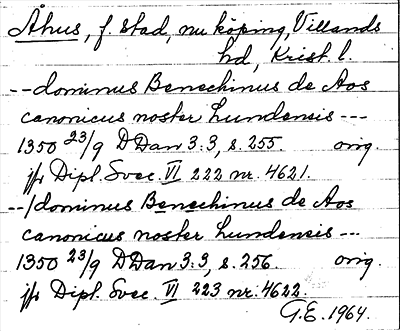 Åhus, f. stad, nu köping, Villands
hd, Krist. l.
-- dominus Benechinus de Aos
canonicus noster Lundensis ---
1350 23/9 DDan 3:3, s. 255. orig.
jfr Dipl. Svec. VI 222 nr. 4621.
--/dominus Benechinus de Aos
canonicus noster Lundensis ---
1350 23/9 DDan 3:3, s. 256. orig.
jfr Dipl. Svec. VI 223 nr. 4622.
G.E. 1964.